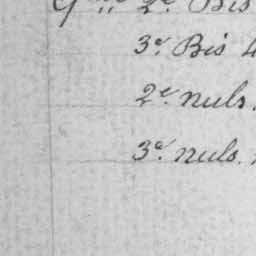 2e. Bis
3e. Bis 4
2e. nuls.
3e. nuls.